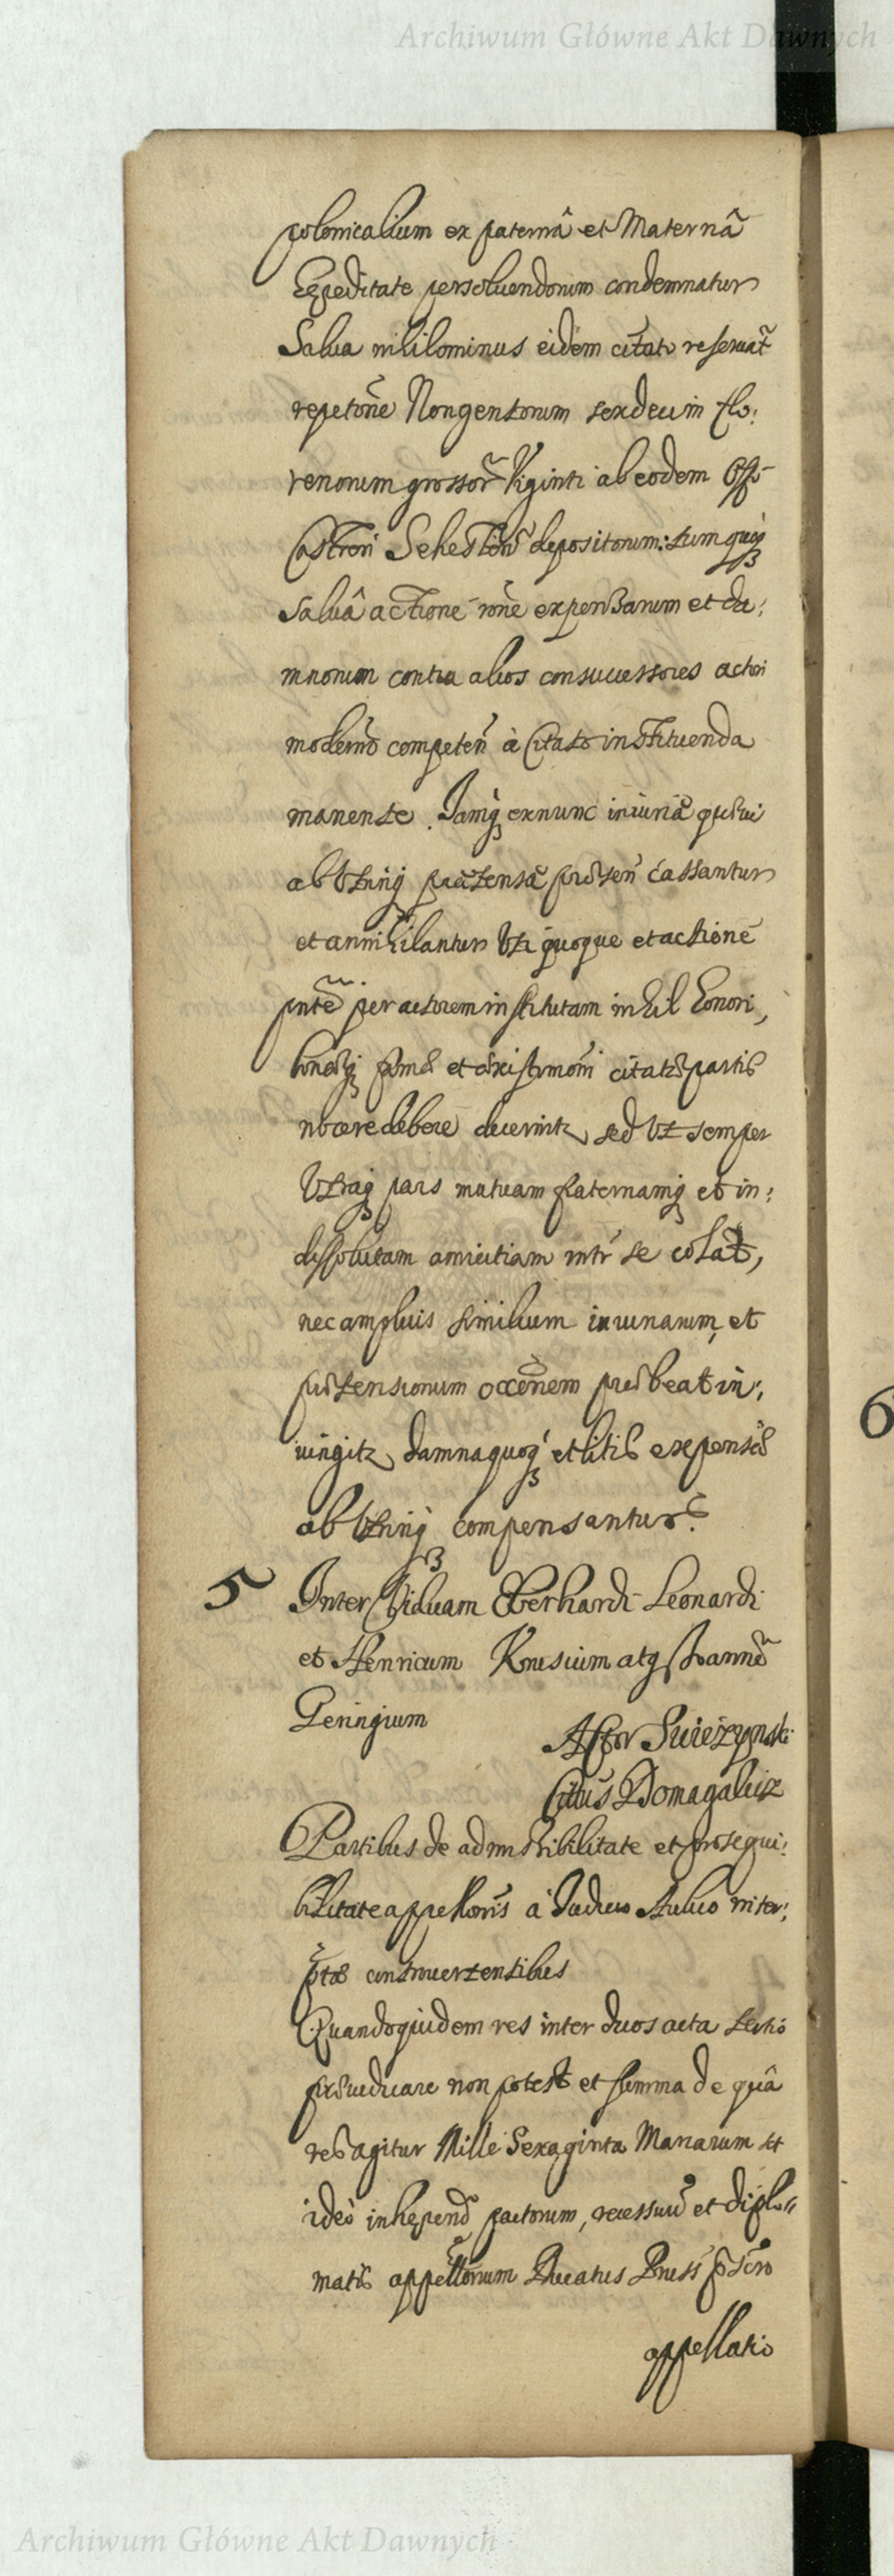 Archiwum Główne Akt Dawnych
polonicalium ex paternâ et Maternã
Expeditate persoluendorum condemnatur
Salua nihilominus eidem citato reseruat̃
repetone Nongentorum sexdecim flo:
renorum grossor̃ Viginti ab eodem Offo
Castren Sehesten̄ depositorum: tum quoq
saluâ actione rõne expensarum et da:
mnorum contra alios consuccessores actori
moderno competen̄ à Citato instituenda
manente. Iamq exnunc iniuriæ quæuis
ab Utrinq prætensæ præsen cassantur
et annihilantur Uti quoque et actione
pntẽ per actorem institutam nihil honori,
bonæq famæ et existimoni citatæ partis
nocere debere decernit, sed Ut semper
Utraq pars mutuam fraternamq et in:
dissolutam amicitiam intr se colat,
nec amplius similium iniuriarum, et
prætensionum occõnem præbeat in:
iungit, damnaquoq et litis expensæ
ab Utrinq compensantur.
5 Inter Viduam Eberhardi Leonardi
et Henricum Knesium atq Joannẽ
Geringium
Actor Swiezynski
Citatus Domagalicz
Partibus de admissibilitate et prosequi:
bilitate appellonis à Iudicio Aulico inter:
ptæ controuertentibus
Quandoquidem res inter duos acta tertio
præiudicare non potest et summa de quâ
res agitur Mille Sexaginta Marcarum et
ideò inhærendo pactorum, recessuũ et diplo
matis appellõnum Ducatus Pruss
appellatio
6
Archiwum Główne Akt Dawnych